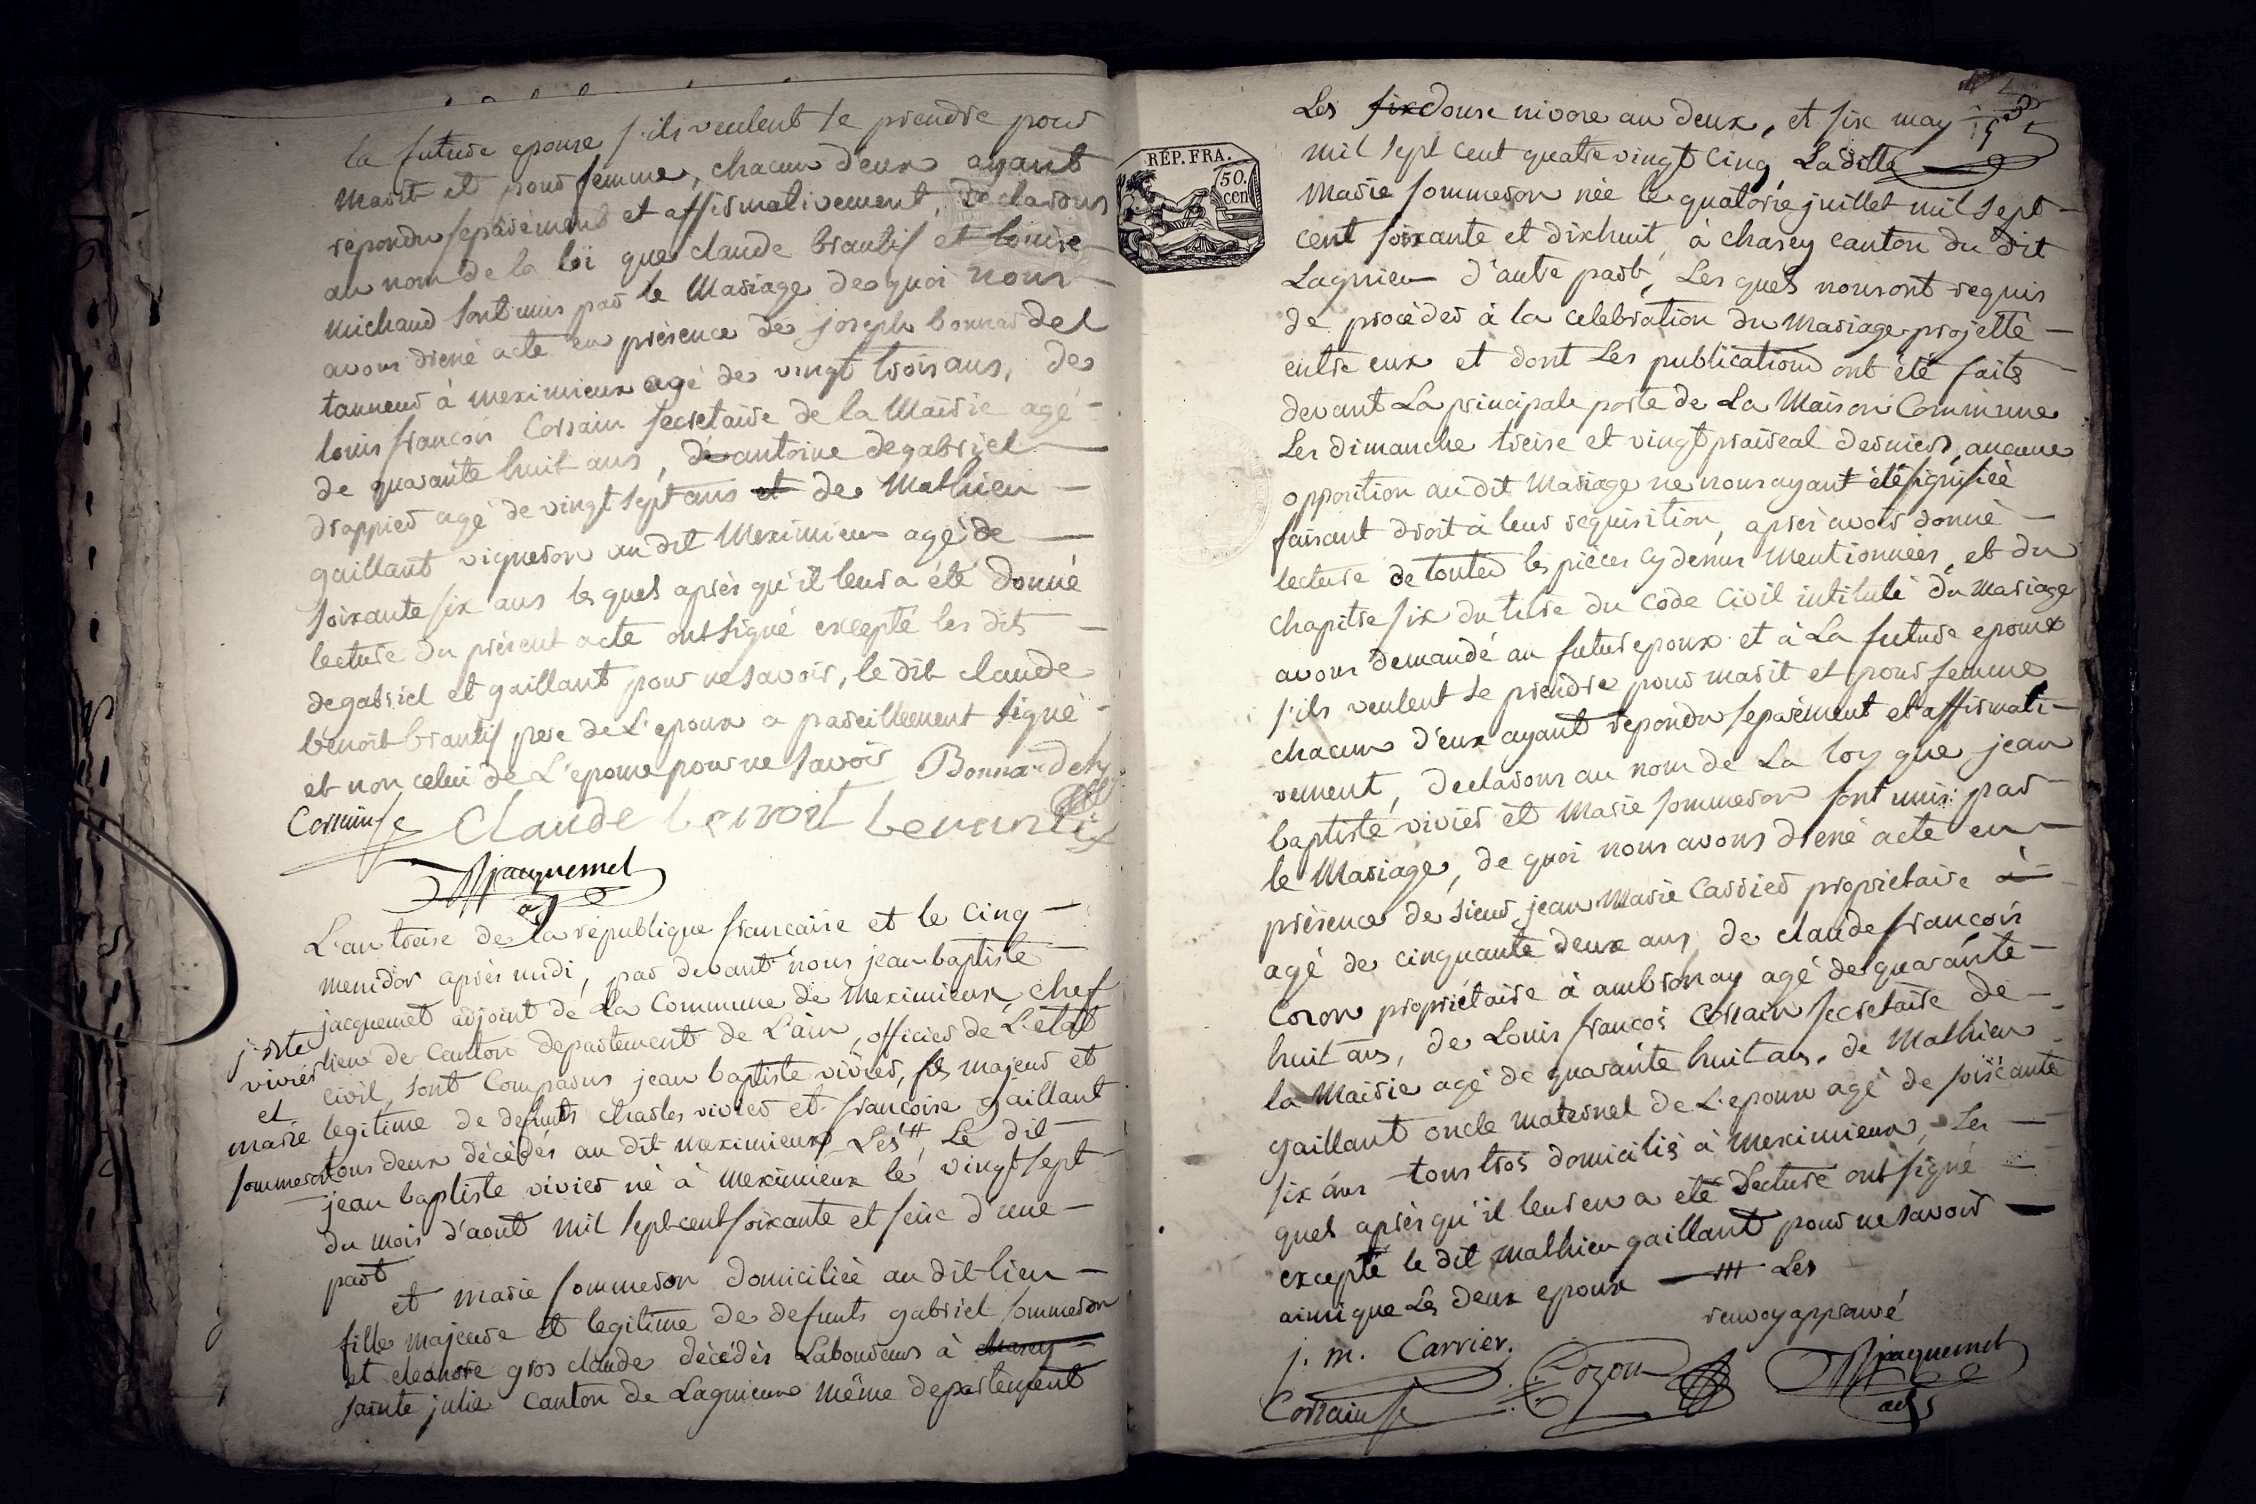 la future epouse s'ils veulent se prendre pour
marit et pour femme, chacun d'eux ayant
repondu separement et affirmativement, declarons
au nom de la loi que claude brantif et louise
michaud sont unis par le mariage de quoi nous
avons dressé acte en présence de joseph bonnardel
tanneur à meximieux agé de vingt trois ans, de
louis françois Corrain secretaire de la Mairie agé
de quarante huit ans, de antoine degabriel
drappier agé de vingt sept ans et de Mathieu
gaillant vigneron au dit Meximieux agé de
soixante six ans les quels après qu'il leur a été donné
lecture du présent acte ont signé excepté les dits
degabriel et gaillant pour ne savoir, le dit claude
benoit brantif pere de L'epoux a pareillement signé
et non celui de L'epouse pour ne savoir Bonnardel
Corrain Claude benoit
jjacquemet
adj
L'an treise de la république francaise et le cinq
messidor après midi, par devant nous jean baptiste
jacquemet adjoint de La Commune de Meximieux, chef
lieu de Canton departement de L'ain, officier de L'etat
civil, sont Comparus jean baptiste vivier, fils majeur et
legitime de defunts charles vivier et francoise gaillant
tous deux décédés au dit meximieux Les # Le dit
jean baptiste vivier né à meximieux le vingt sept
du mois d'aout mil sept cent soixante et seise d'une
part
j. bte
vivier
et
marie
sommeron
et marie sommeron domiciliée au dit lieu
fille majeure et legitime de defunts gabriel sommeron
et eleanore gros claude décédés Laboureurs à charey
sainte julie canton de Lagnieux même departement
RÉP. FRA.
50.
cen
Les six douse nivose an deux, et six may
mil sept cent quatre vingt cinq La ditte
Marie sommeron née le quatorse juillet mil sept
cent soixante et dixhuit, à charey canton du dit
Lagnieu d'autre part, Les quels nous ont requis
de procéder à la celebration du Mariage projetté
entre eux et dont Les publications ont été faits
devant La principale porte de La Maison Commune
Les dimanche treise et vingt praireal dernier, aucune
opposition au dit Mariage ne nous ayant été signifiée
faisant droit à leur requisition, après avoir donné
lecture de toutes les pièces cy dessus mentionnées, et du
chapitre six du titre du Code Civil intitulé du Mariage
avons demandé au futur epoux et à La future epouse
s'ils veulent se prendre pour marit et pour femme
chacun d'eux ayant repondu separément et affirmati-
vement, declarons au nom de La loy que jean
baptiste vivier et Marie sommeron sont unis par
le Mariage, de quoi nous avons dressé acte en
présence de sieur jean Marie Carrier propriétaire à
agé de cinquante deux ans, de claude françois
Cozon propriétaire à ambronay agé de quarante
huit ans, de Louis françois Corrain secretaire de
la Mairie agé de quarante huit ans, de Mathieu
gaillant oncle maternel de L'epoux agé de soixante
six ans tous trois domiciliés à Meximieux, Les
quels après qu'il leur en a été Lecture ont signé
excepté le dit mathieu gaillant pour ne savoir
ainsi que Les deux epoux # Les
renvoy approuvé
j. m. Carrier. Cozon jjacquemet
Corrain adj